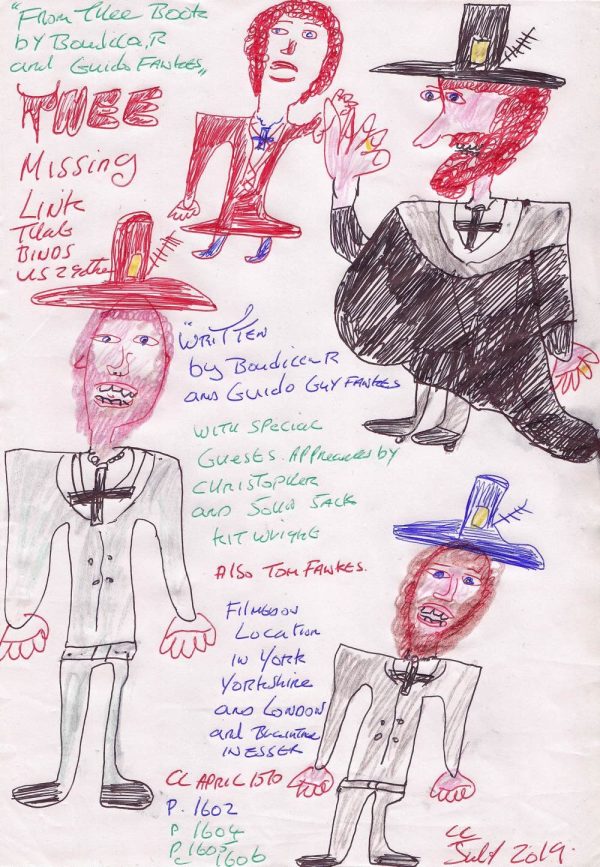 "From Thee Book
by Boudicca,R
and Guido Fawkes,,
THEE
Missing
Link
That
BINDS
US 2gether
"WRITTEN
by Boudicca R
and Guido Guy Fawkes
With Special
Guests. Appreances by
Christopher
and John Jack
Kit Wright
Also Tom Fawkes.
Filmed on
Location
in York
Yorkshire
and London
and
in Essex
CC April 1570
P. 1602
P 1604
P. 1605
C 1606
CC
July 2019.